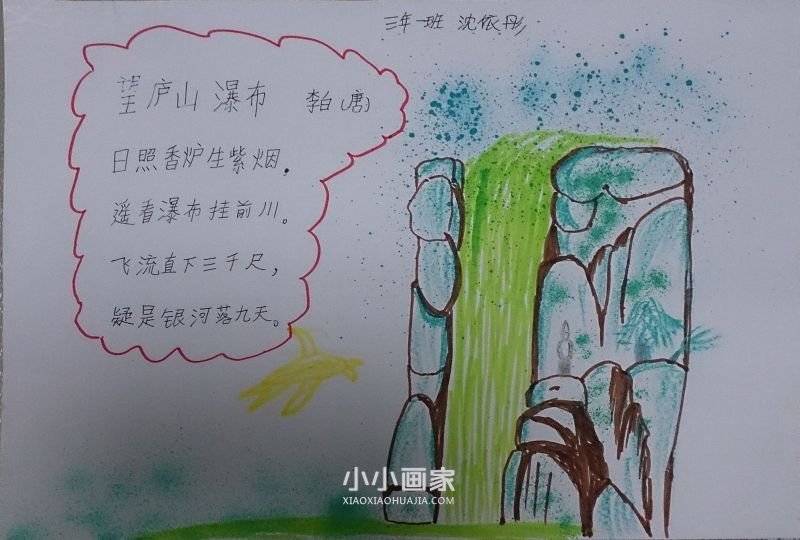 三年一班 沈依彤
望庐山瀑布 李白(唐)
日照香炉生紫烟.
遥看瀑布挂前川。
飞流直下三千尺,
疑是银河落九天。
小小画家
XIAOXIAOHUAJIA.COM